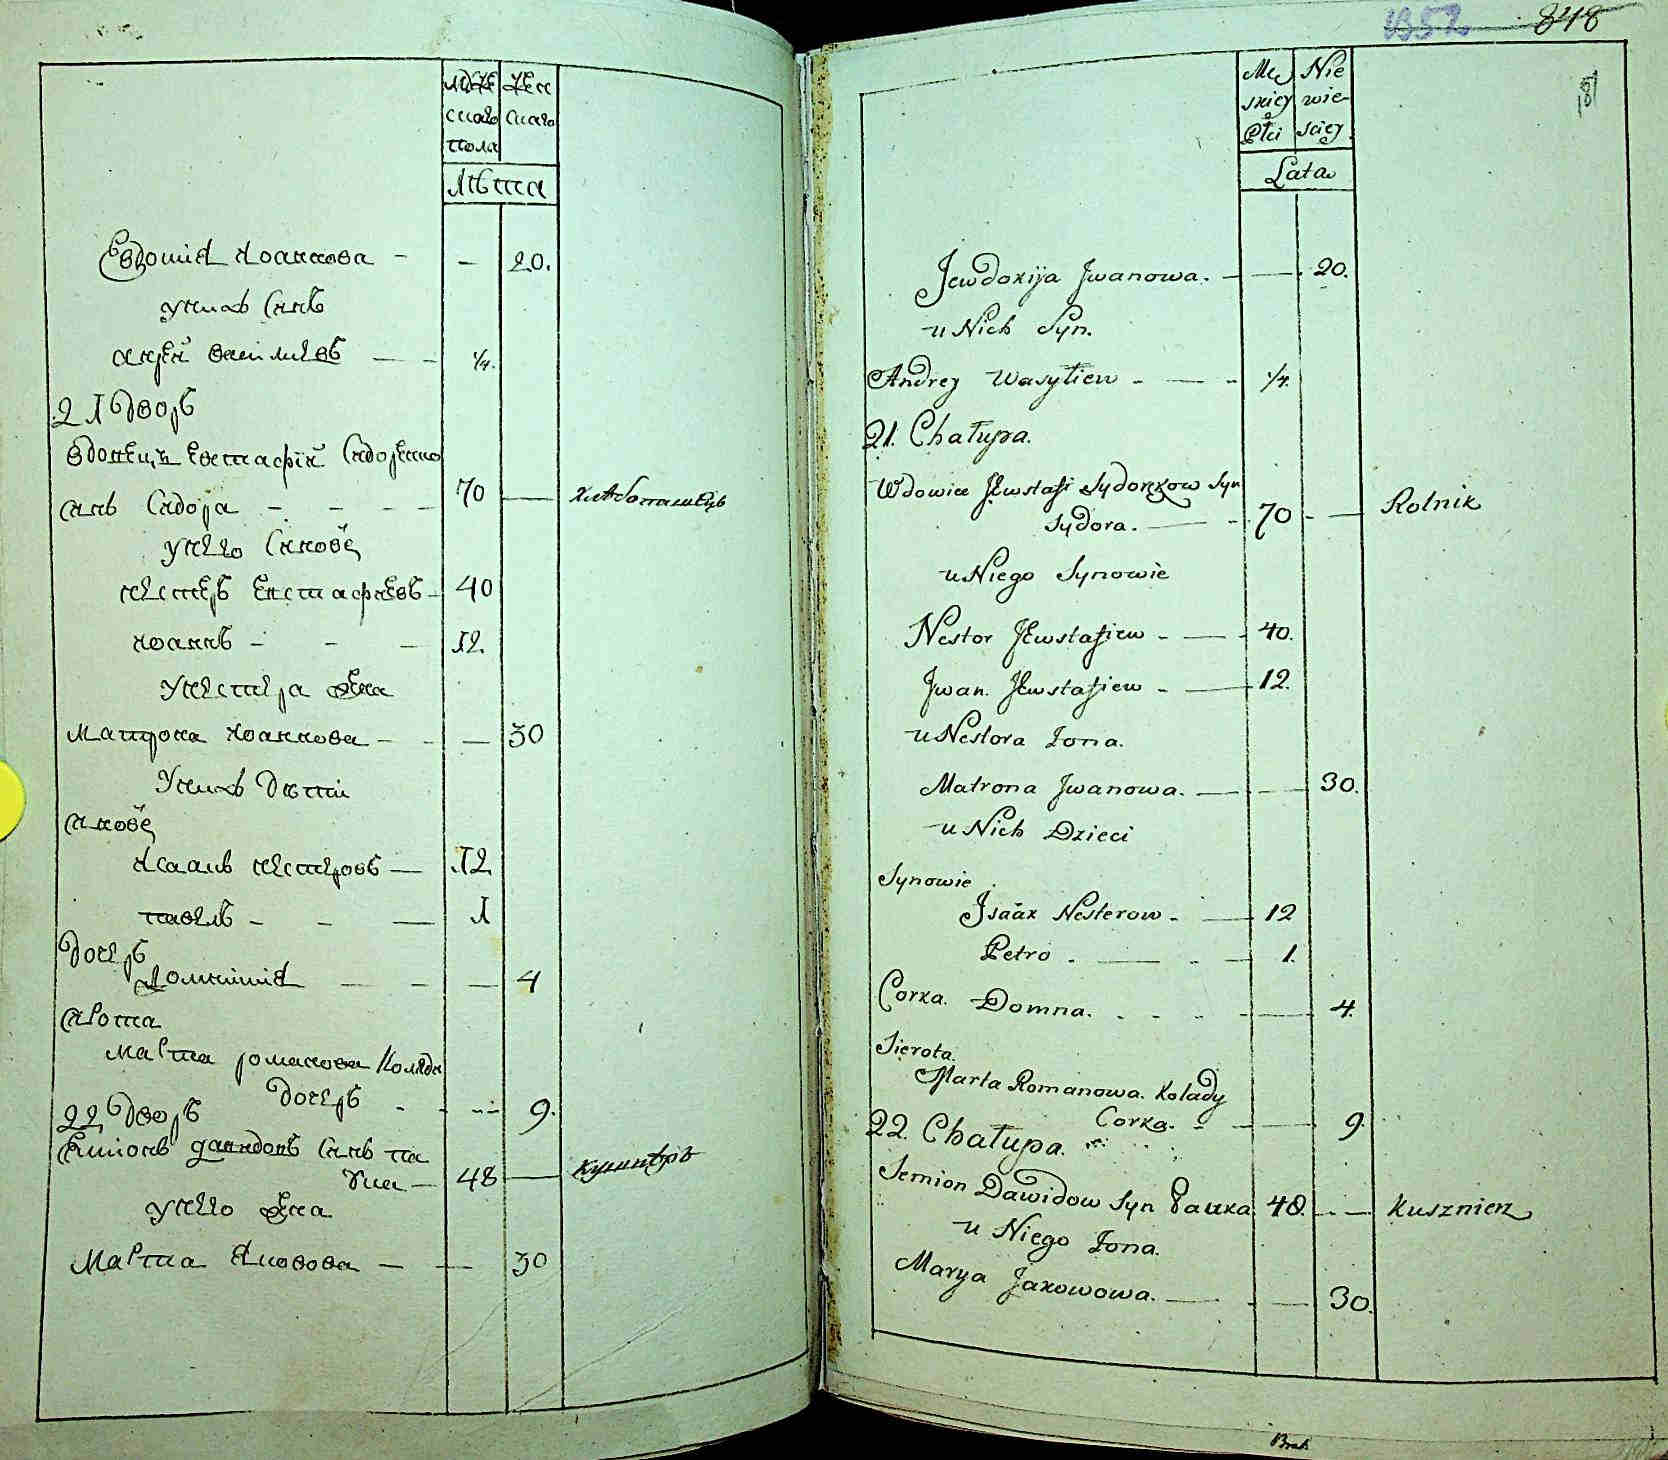 муже
скаго
пола
жен
скаго
лѣта
Евдокия Иоаннова - - 20.
у нихъ Сынъ
андрей василиевъ — - 1/4.
21 дворъ
вдовецъ Евстафий Сидоренко
сынъ Сидора - - - - 70 — хлѣбопашецъ
у него Сынове
нестеръ Евстафиевъ - 40
иоаннъ - - — 12.
у нестера жена
матрона иоаннова - - — 30
У нихъ дѣти
сынове
исаакъ нестеровъ — 12
павелъ - - — 1
дочерь
Домникия — - — 4
сирота
марта романова Коляды
дочерь - - - 9.
22 дворъ
Симионъ давидовъ сынъ па
ука — 48 — кушнѣръ
у него жена
марта Яковова — — 30
1352 848
Mę
skiey
Płci
Nie
wie-
sciey.
Lata
Jewdokija Jwanowa. - — . 20.
u Nich Syn.
Andrey Wasyliew - — - 1/4.
21. Chałupa.
Wdowiec JEwstafi Sydorkow Syn
Sydora. — - 70 - — Rolnik
u Niego Synowie
Nestor JEwstafiew - — - 40.
Jwan. JEwstafiew - — 12.
u Nestora Żona.
Matrona Jwanowa. — - — 30.
u Nich Dzieci
Synowie.
Jsaak Nesterow - — 12
Petro . — - — 1.
Corka. Domna. . - . - — 4.
Sierota.
Marta Romanowa. Kolady
Corka. - — — 9.
22. Chałupa.
Semion Dawidow Syn Pauka 48. - — Kusznierz
u Niego Żona.
Marya Jakowowa. — - — 30.
Brat.